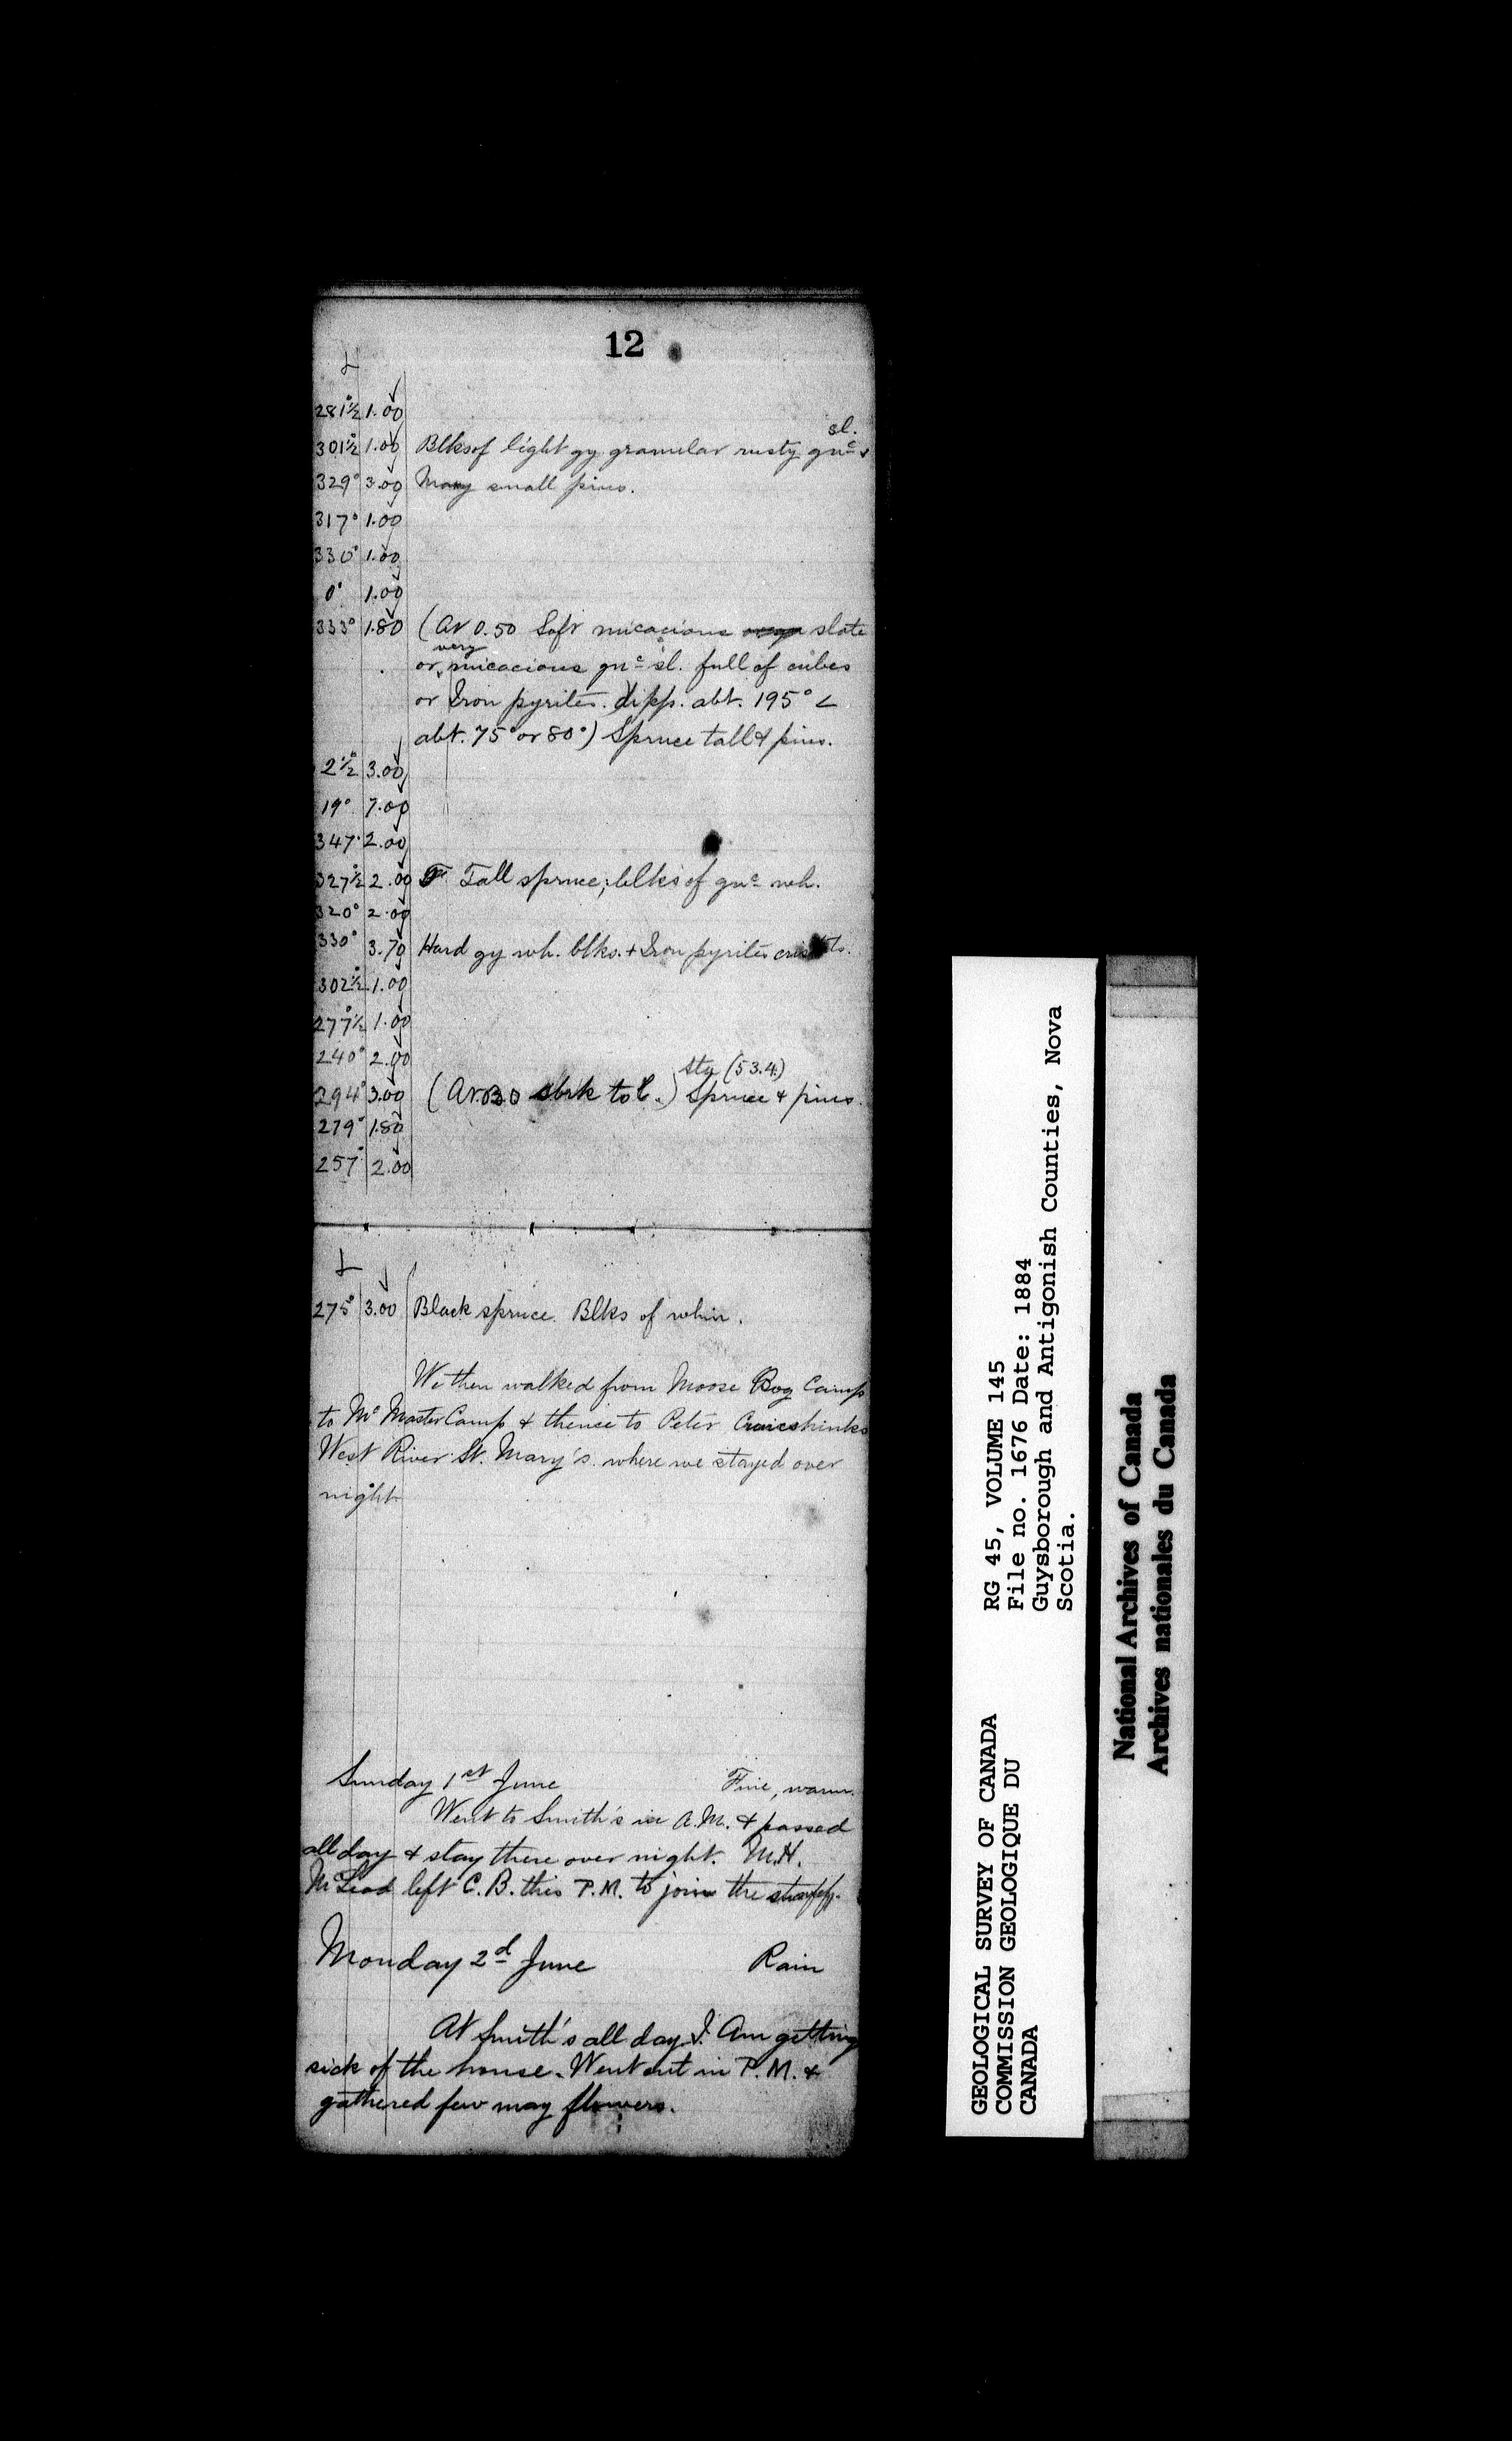 12
L
281°½ 1.00
sl.
301°½ 1.00 Blks of light gy granular rusty gnc &
329° 3.00 Many small pins.
317° 1.00
330° 1.00
0° 1.00
333° 1.80 (At 0.50 Soft micacious slate
very
or micacious gnc sl. full of cubes
or Iron pyrites. dipp. abt. 195° <
abt. 75° or 80°) Spruce tall & pins.
2°½ 3.00
19° 7.00
347° 2.00
327°½ 2.00 Tall spruce; blks of gnc wh.
320° 2.00
330° 3.70 Hard gy wh. blks. + Iron pyrites
302°½ 1.00
277°½ 1.00
240° 2.00
sty (53.4)
294° 3.00 (At sbrk to l.) Spruce & pins.
279° 1.80
257° 2.00
L
275° 3.00 Black spruce. Blks of whin.
We then walked from Moose Bog Camp
to Mc Master Camp & thence to Peter Cruicshinks
West River St. Mary's. where we stayed over
night
Sunday 1st June Fine, warm.
Went to Smith's in A.M. & passed
all day & stay there over night. M.H.
McLeod left C.B. this P.M. to join the
Monday 2d June Rain
At Smith's all day. I. Am getting
sick of the house. Went out in P.M. &
gathered few may flowers.
13
GEOLOGICAL SURVEY OF CANADA
COMMISSION GEOLOGIQUE DU
CANADA
RG 45, VOLUME 145
File no. 1676 Date: 1884
Guysborough and Antigonish Counties, Nova
Scotia.
National Archives of Canada
Archives nationales du Canada